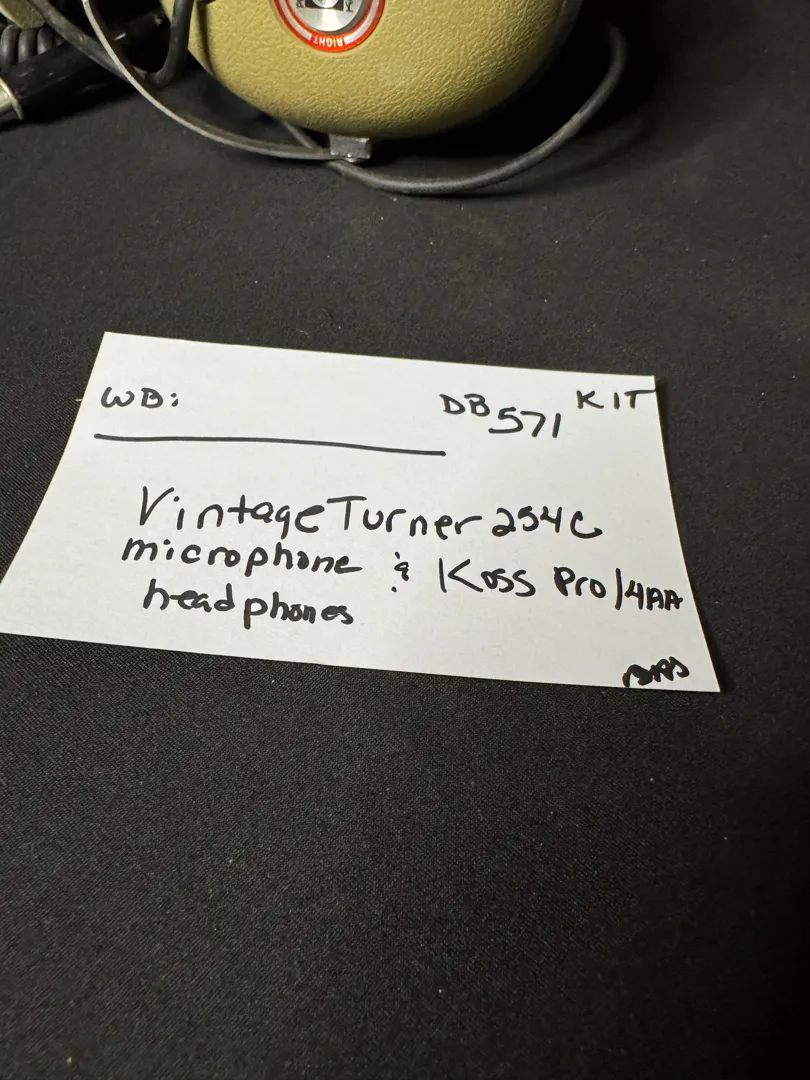 RIGHT
WB: DB 571 KIT
Vintage Turner 254C
microphone & Koss Pro/4AA
headphones